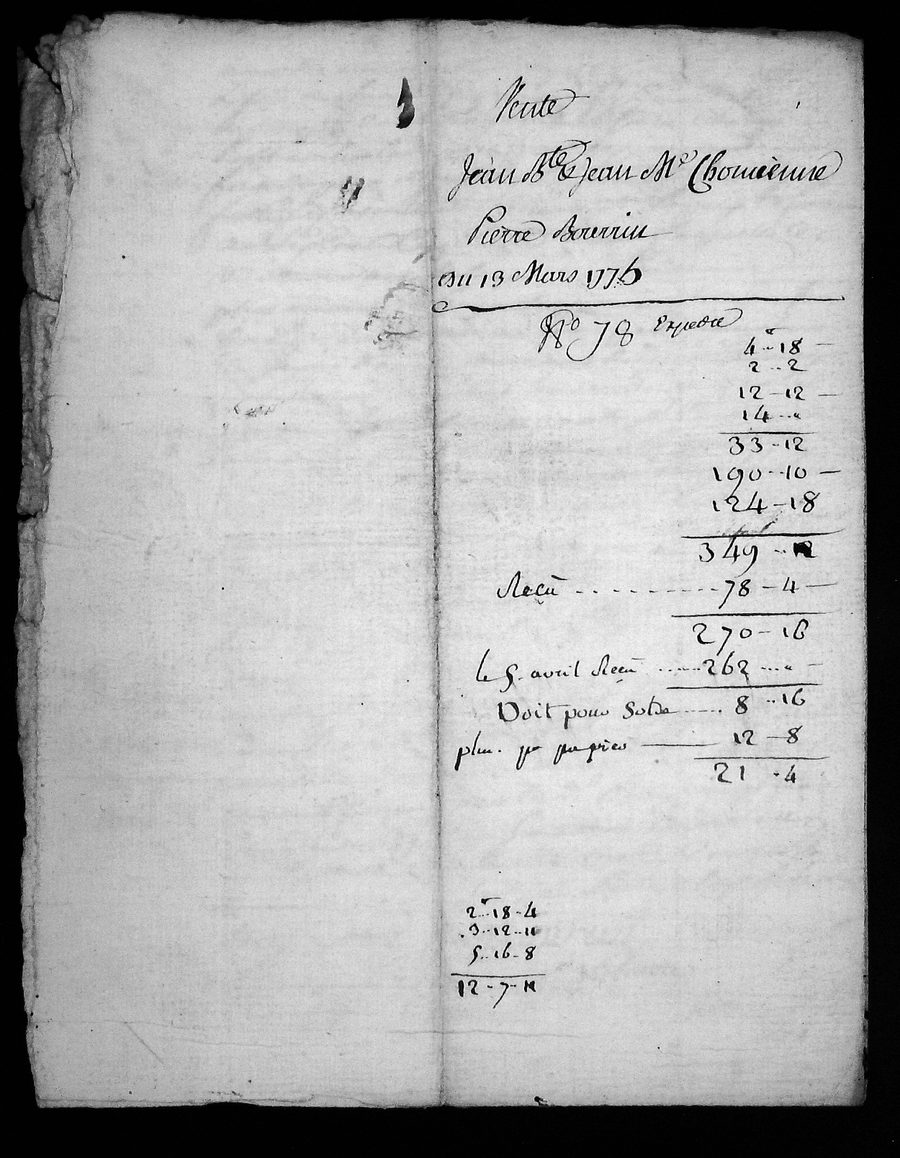 Vente
Jean Bte & Jean Me Chomienne
Pierre Bourrin
Du 13 Mars 1776
No 78 Expediée
4 .. 18 -
2 .. 2
12 - 12 -
14 .. "
33 - 12
190 - 10 -
124 - 18
349 .. 12
Reçu - - - - - - - - 78 - 4 -
270 - 16
le 5 avril Reçu ..... 262 ... " -
Doit pour Solde ---- 8 .. 16
plus. pr papier ——— 12 - 8
21 - 4
2 .. 18 - 4
3 .. 12 .. 11
5 .. 16 - 8
12 - 7 - 11